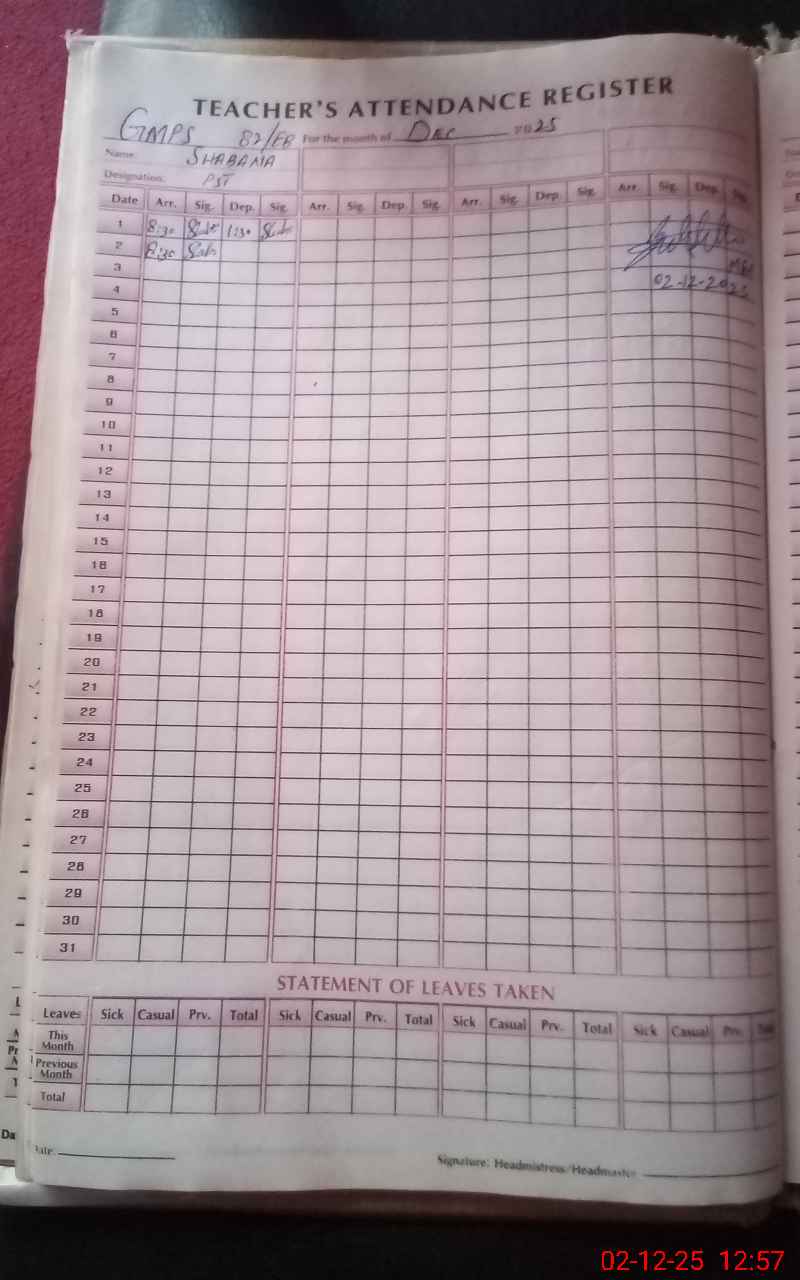 TEACHER'S ATTENDANCE REGISTER
GMPS 82/EB For the month of DEC 2025
Name: SHABANA
Designation: PST
Date Arr. Sig. Dep. Sig. Arr. Sig. Dep. Sig. Arr. Sig. Dep. Sig. Arr. Sig. Dep. Sig.
1 8:30 1:30
2 8:30
3
4 02-12-2025
5
6
7
8
9
10
11
12
13
14
15
16
17
18
19
20
21
22
23
24
25
26
27
28
29
30
31
STATEMENT OF LEAVES TAKEN
Leaves Sick Casual Prv. Total Sick Casual Prv. Total Sick Casual Prv. Total Sick Casual Prv. Total
This Month
Previous Month
Total
Date. Signature: Headmistress/Headmaster
02-12-25 12:57